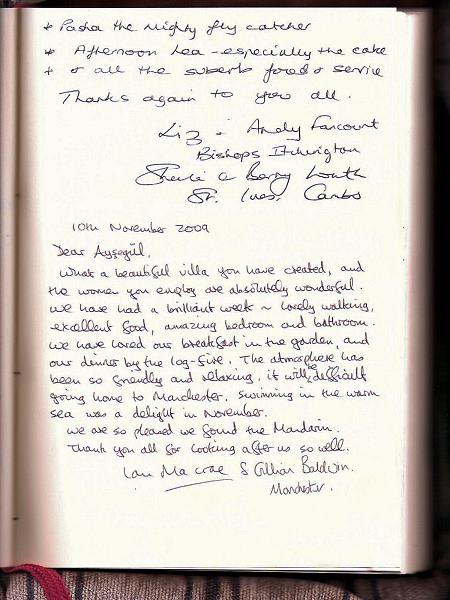 * Pasha the mighty fly catcher
* Afternoon tea - especially the cake
* & all the superb food & service
Thanks again to you all.
Liz & Andy Fancourt
Bishops Itchington
Sheila & Barry Louth
St. Ives. Cambs
10th November 2009
Dear Ayşegül.
What a beautiful villa you have created, and
the women you employ are absolutely wonderful.
We have had a brilliant week ~ lovely walking,
excellent food, amazing bedroom and bathroom.
We have loved our breakfast in the garden, and
our dinner by the log-fire. The atmosphere has
been so friendly and relaxing, it will be difficult
going home to Manchester. Swimming in the warm
sea was a delight in November.
We are so pleased we found the Mandarin.
Thank you all for looking after us so well.
Ian Macrae & Gillian Baldwin.
Manchester.